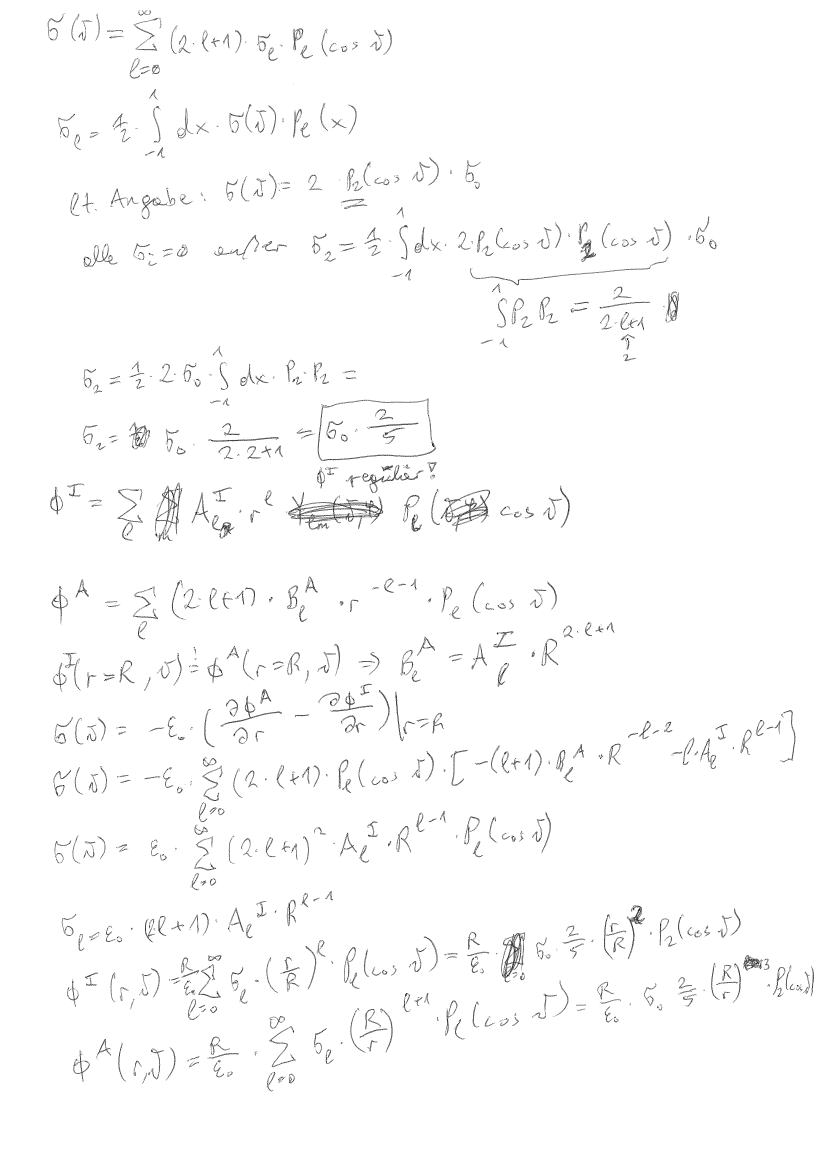 σ(ϑ) = ∑_{l=0}^{∞} (2·l+1)·σ_l·P_l(cos ϑ)
σ_l = 1/2·∫_{-1}^{1} dx·σ(ϑ)·P_l(x)
lt. Angabe: σ(ϑ) = 2 P_2(cos ϑ)·σ_0
alle σ_i=0 außer σ_2 = 1/2·∫_{-1}^{1} dx·2·P_2(cos ϑ)·P_2(cos ϑ)·σ_0
∫_{-1}^{1} P_2 P_2 = 2/(2·l+1)
↑
2
σ_2 = 1/2·2·σ_0·∫_{-1}^{1} dx·P_2·P_2 =
σ_2 = σ_0·2/(2·2+1) = σ_0·2/5
ϕ^I regulär!
ϕ^I = ∑_l A_l^I·r^l P_l(cos ϑ)
ϕ^A = ∑_l (2·l+1)·B_l^A·r^{-l-1}·P_l(cos ϑ)
ϕ^I(r=R,ϑ) =! ϕ^A(r=R,ϑ) ⇒ B_l^A = A_l^I·R^{2·l+1}
σ(ϑ) = -ε_0·(∂ϕ^A/∂r - ∂ϕ^I/∂r)|_{r=R}
σ(ϑ) = -ε_0·∑_{l=0}^{∞} (2·l+1)·P_l(cos ϑ)·[-(l+1)·B_l^A·R^{-l-2} -l·A_l^I·R^{l-1}]
σ(ϑ) = ε_0·∑_{l=0}^{∞} (2·l+1)^2·A_l^I·R^{l-1}·P_l(cos ϑ)
σ_l = ε_0·(2l+1)·A_l^I·R^{l-1}
ϕ^I(r,ϑ) = R/ε_0 ∑_{l=0}^{∞} σ_l·(r/R)^l·P_l(cos ϑ) = R/ε_0·σ_0·2/5·(r/R)^2·P_2(cos ϑ)
ϕ^A(r,ϑ) = R/ε_0·∑_{l=0}^{∞} σ_l·(R/r)^{l+1}·P_l(cos ϑ) = R/ε_0·σ_0 2/5·(R/r)^3·P_2(cos ϑ)